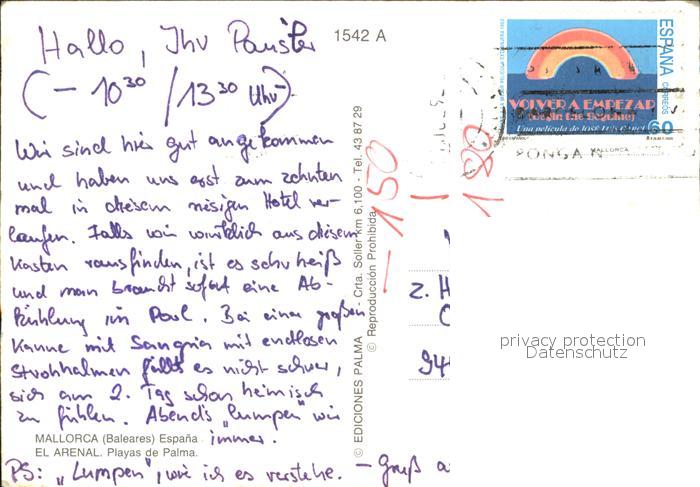 Hallo, Ihr Panster
(- 10³⁰ / 13³⁰ Uhr)
Wir sind hier gut angekommen
und haben uns erst zum zehnten
mal in diesem riesigen Hotel ver-
laufen. Falls wir wirklich aus diesem
Kasten rausfinden, ist es sehr heiß
und man braucht sofort eine Ab-
kühlung im Pool. Bei einer großen
Kanne mit Sangria mit endlosen
Strohhalmen fällt es nicht schwer,
sich am 2. Tag schon heimisch
zu fühlen. Abends "lumpen" wir
immer.
PS: "Lumpen", wie ich es verstehe. - Gruß a
MALLORCA (Baleares) España
EL ARENAL. Playas de Palma.
1542 A
© EDICIONES PALMA - Crta. Soller km 6,100 - Tel. 43 87 29
© Reproducción Prohibida
- 150
180
ESPAÑA
CORREOS
60
VOLVER A EMPEZAR
(Begin the Beguine)
Una película de José Luis Garci
PONGA
MALLORCA
z. H
94
privacy protection
Datenschutz